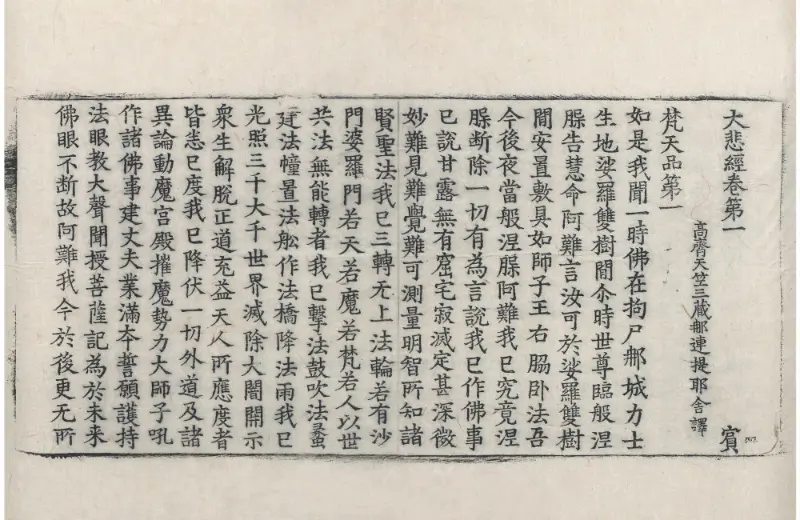 大悲經卷第一
賔
高齊天竺三藏那連提耶舍譯
梵天品第一
如是我聞一時佛在拘尸那城力士
生地娑羅雙樹間尒時世尊臨般涅
槃告慧命阿難言汝可於娑羅雙樹
間安置敷具如師子王右脇卧法吾
今後夜當般涅槃阿難我已究竟涅
槃断除一切有為言說我已作佛事
已說甘露無有窟宅寂滅定甚深微
妙難見難覺難可測量明智所知諸
賢聖法我已三轉无上法輪若有沙
門婆羅門若天若魔若梵若人以世
共法無能轉者我已擊法鼓吹法蠡
建法幢置法舩作法橋降法雨我已
光照三千大千世界滅除大闇開示
衆生解脫正道充益天人所應度者
皆悉已度我已降伏一切外道及諸
異論動魔宫殿摧魔勢力大師子吼
作諸佛事建丈夫業滿夲誓願護持
法眼教大聲聞授菩薩記為於未来
佛眼不断故阿難我今於後更无所